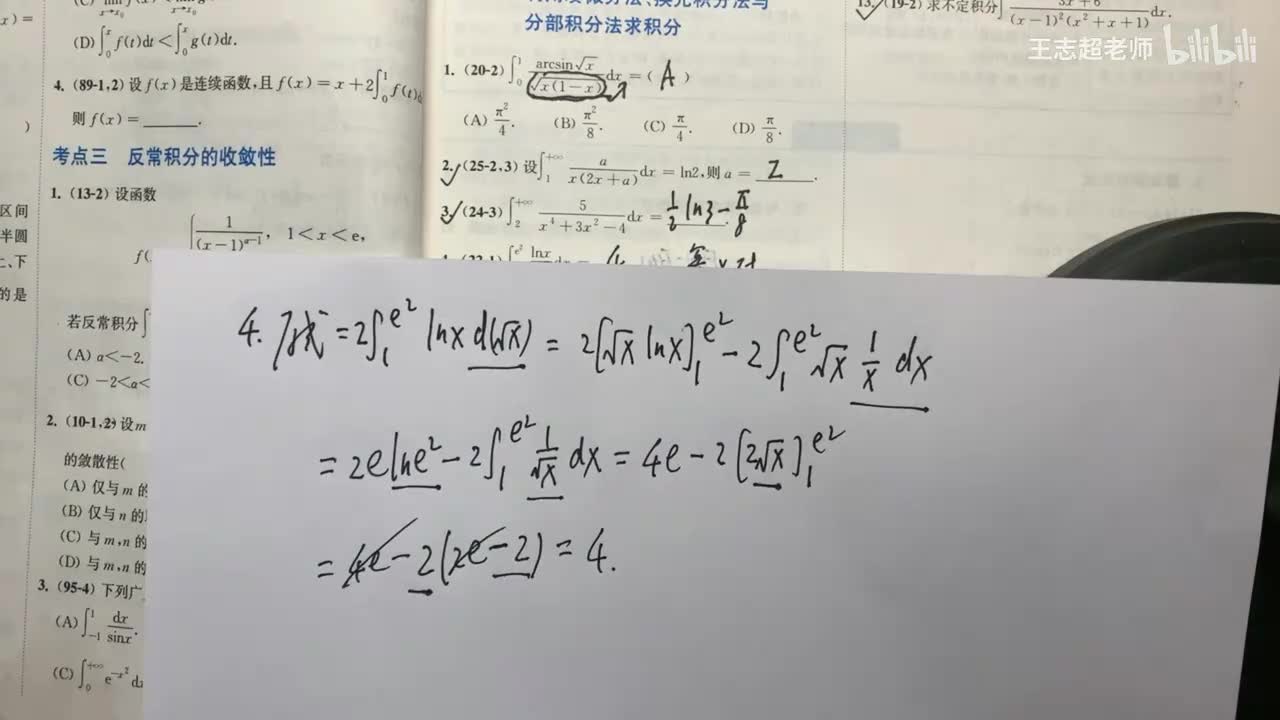 (D)∫₀ˣ f(t)dt < ∫₀ˣ g(t)dt.
4. (89-1,2) 设 f(x) 是连续函数,且 f(x) = x + 2∫₀¹ f(t)
则 f(x) = ______.
考点三 反常积分的收敛性
1. (13-2) 设函数
1/(x−1)^(α−1), 1 < x < e,
若反常积分
(A) α < −2.
(C) −2 < α <
2. (10-1,2) 设 m
的敛散性(
(A) 仅与 m 的
(B) 仅与 n 的
(C) 与 m,n 的
(D) 与 m,n 的
3. (95-4) 下列广
(A) ∫₋₁¹ dx/sinx.
(C) ∫₀^(+∞) e^(−x²) d
区间
半圆
、下
的是
分部积分法求积分
1. (20-2) ∫₀¹ arcsin√x/√(x(1−x)) dx = ( A )
(A) π²/4. (B) π²/8. (C) π/4. (D) π/8.
2. (25-2,3) 设 ∫₁^(+∞) a/(x(2x+a)) dx = ln2,则 a = 2 .
3. (24-3) ∫₂^(+∞) 5/(x⁴+3x²−4) dx = 1/2 ln3 − π/8
13. (19-2) 求不定积分 ∫ (3x+6)/((x−1)²(x²+x+1)) dx.
王志超老师 bilibili
4. 原式 = 2∫₁^(e²) lnx d(√x) = 2[√x lnx]₁^(e²) − 2∫₁^(e²) √x 1/x dx
= 2e lne² − 2∫₁^(e²) 1/√x dx = 4e − 2[2√x]₁^(e²)
= 4e − 2(2e − 2) = 4.